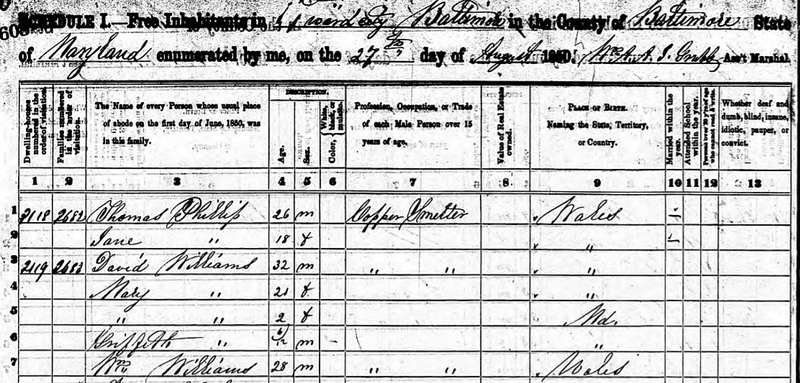 SCHEDULE I.—Free Inhabitants in 1st ward City Baltimore in the County of Baltimore State
of Maryland enumerated by me, on the 27th day of August 1850. Ass't Marshal.
DESCRIPTION.
Dwelling-houses numbered in the order of visitation.
Families numbered in the order of visitation.
The Name of every Person whose usual place of abode on the first day of June, 1850, was in this family.
Age.
Sex.
Color, White, black, or mulatto.
Profession, Occupation, or Trade of each Male Person over 15 years of age.
Value of Real Estate owned.
PLACE OF BIRTH. Naming the State, Territory, or Country.
Married within the year.
Attended School within the year.
Persons over 20 y'rs of age who cannot read & write.
Whether deaf and dumb, blind, insane, idiotic, pauper, or convict.
1 2 3 4 5 6 7 8 9 10 11 12 13
1 2118 2682 Thomas Phillip 26 m Copper Smelter Wales 1
2 Jane " 18 f " 1
3 2119 2683 David Williams 32 m " " "
4 Mary " 21 f "
5 " " 2 f Md.
6 Griffith " 6/12 m "
7 Wm Williams 28 m " " Wales